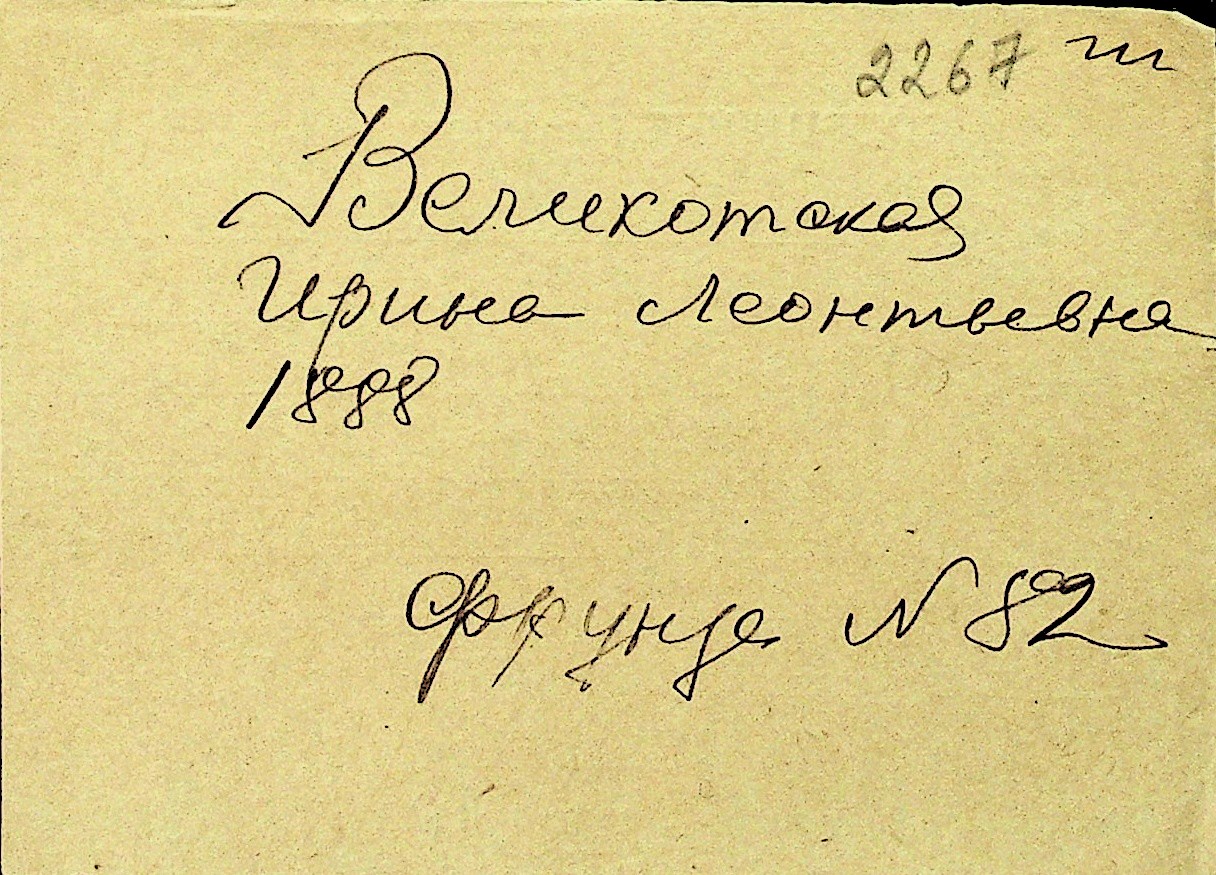 2267
Великотская
Ирина Леонтьевна
1888
Фрунзе N 82